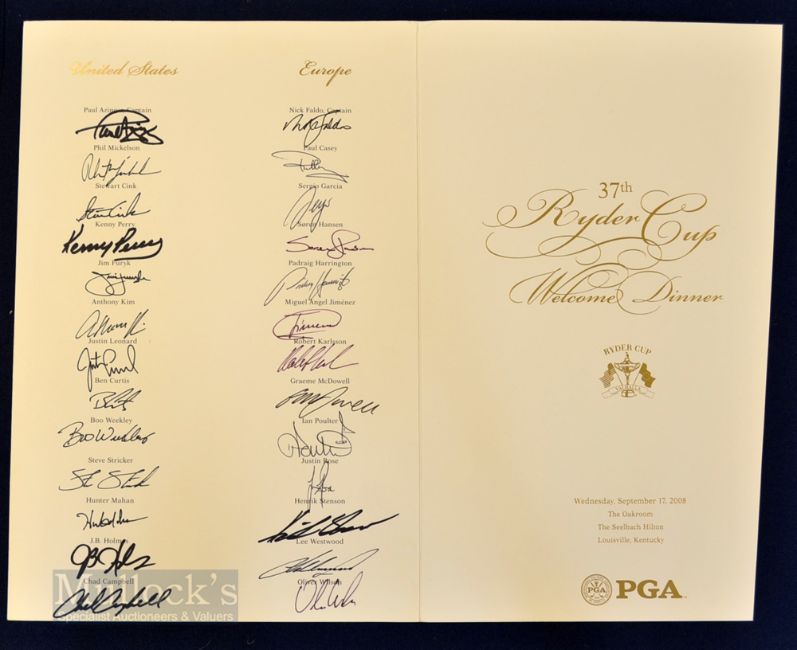 United States
Paul Azinger, Captain
Phil Mickelson
Stewart Cink
Kenny Perry
Kenny Perry
Jim Furyk
Anthony Kim
Justin Leonard
Ben Curtis
Boo Weekley
Boo Weekley
Steve Stricker
Hunter Mahan
J.B. Holmes
Chad Campbell
Europe
Nick Faldo, Captain
Paul Casey
Sergio Garcia
Soren Hansen
Padraig Harrington
Miguel Angel Jiménez
Robert Karlsson
Graeme McDowell
Ian Poulter
Justin Rose
Henrik Stenson
Lee Westwood
Oliver Wilson
37th
Ryder Cup
Welcome Dinner
RYDER CUP
VALHALLA
Wednesday, September 17, 2008
The Oakroom
The Seelbach Hilton
Louisville, Kentucky
PGA
PGA
Mullock's
Specialist Auctioneers & Valuers